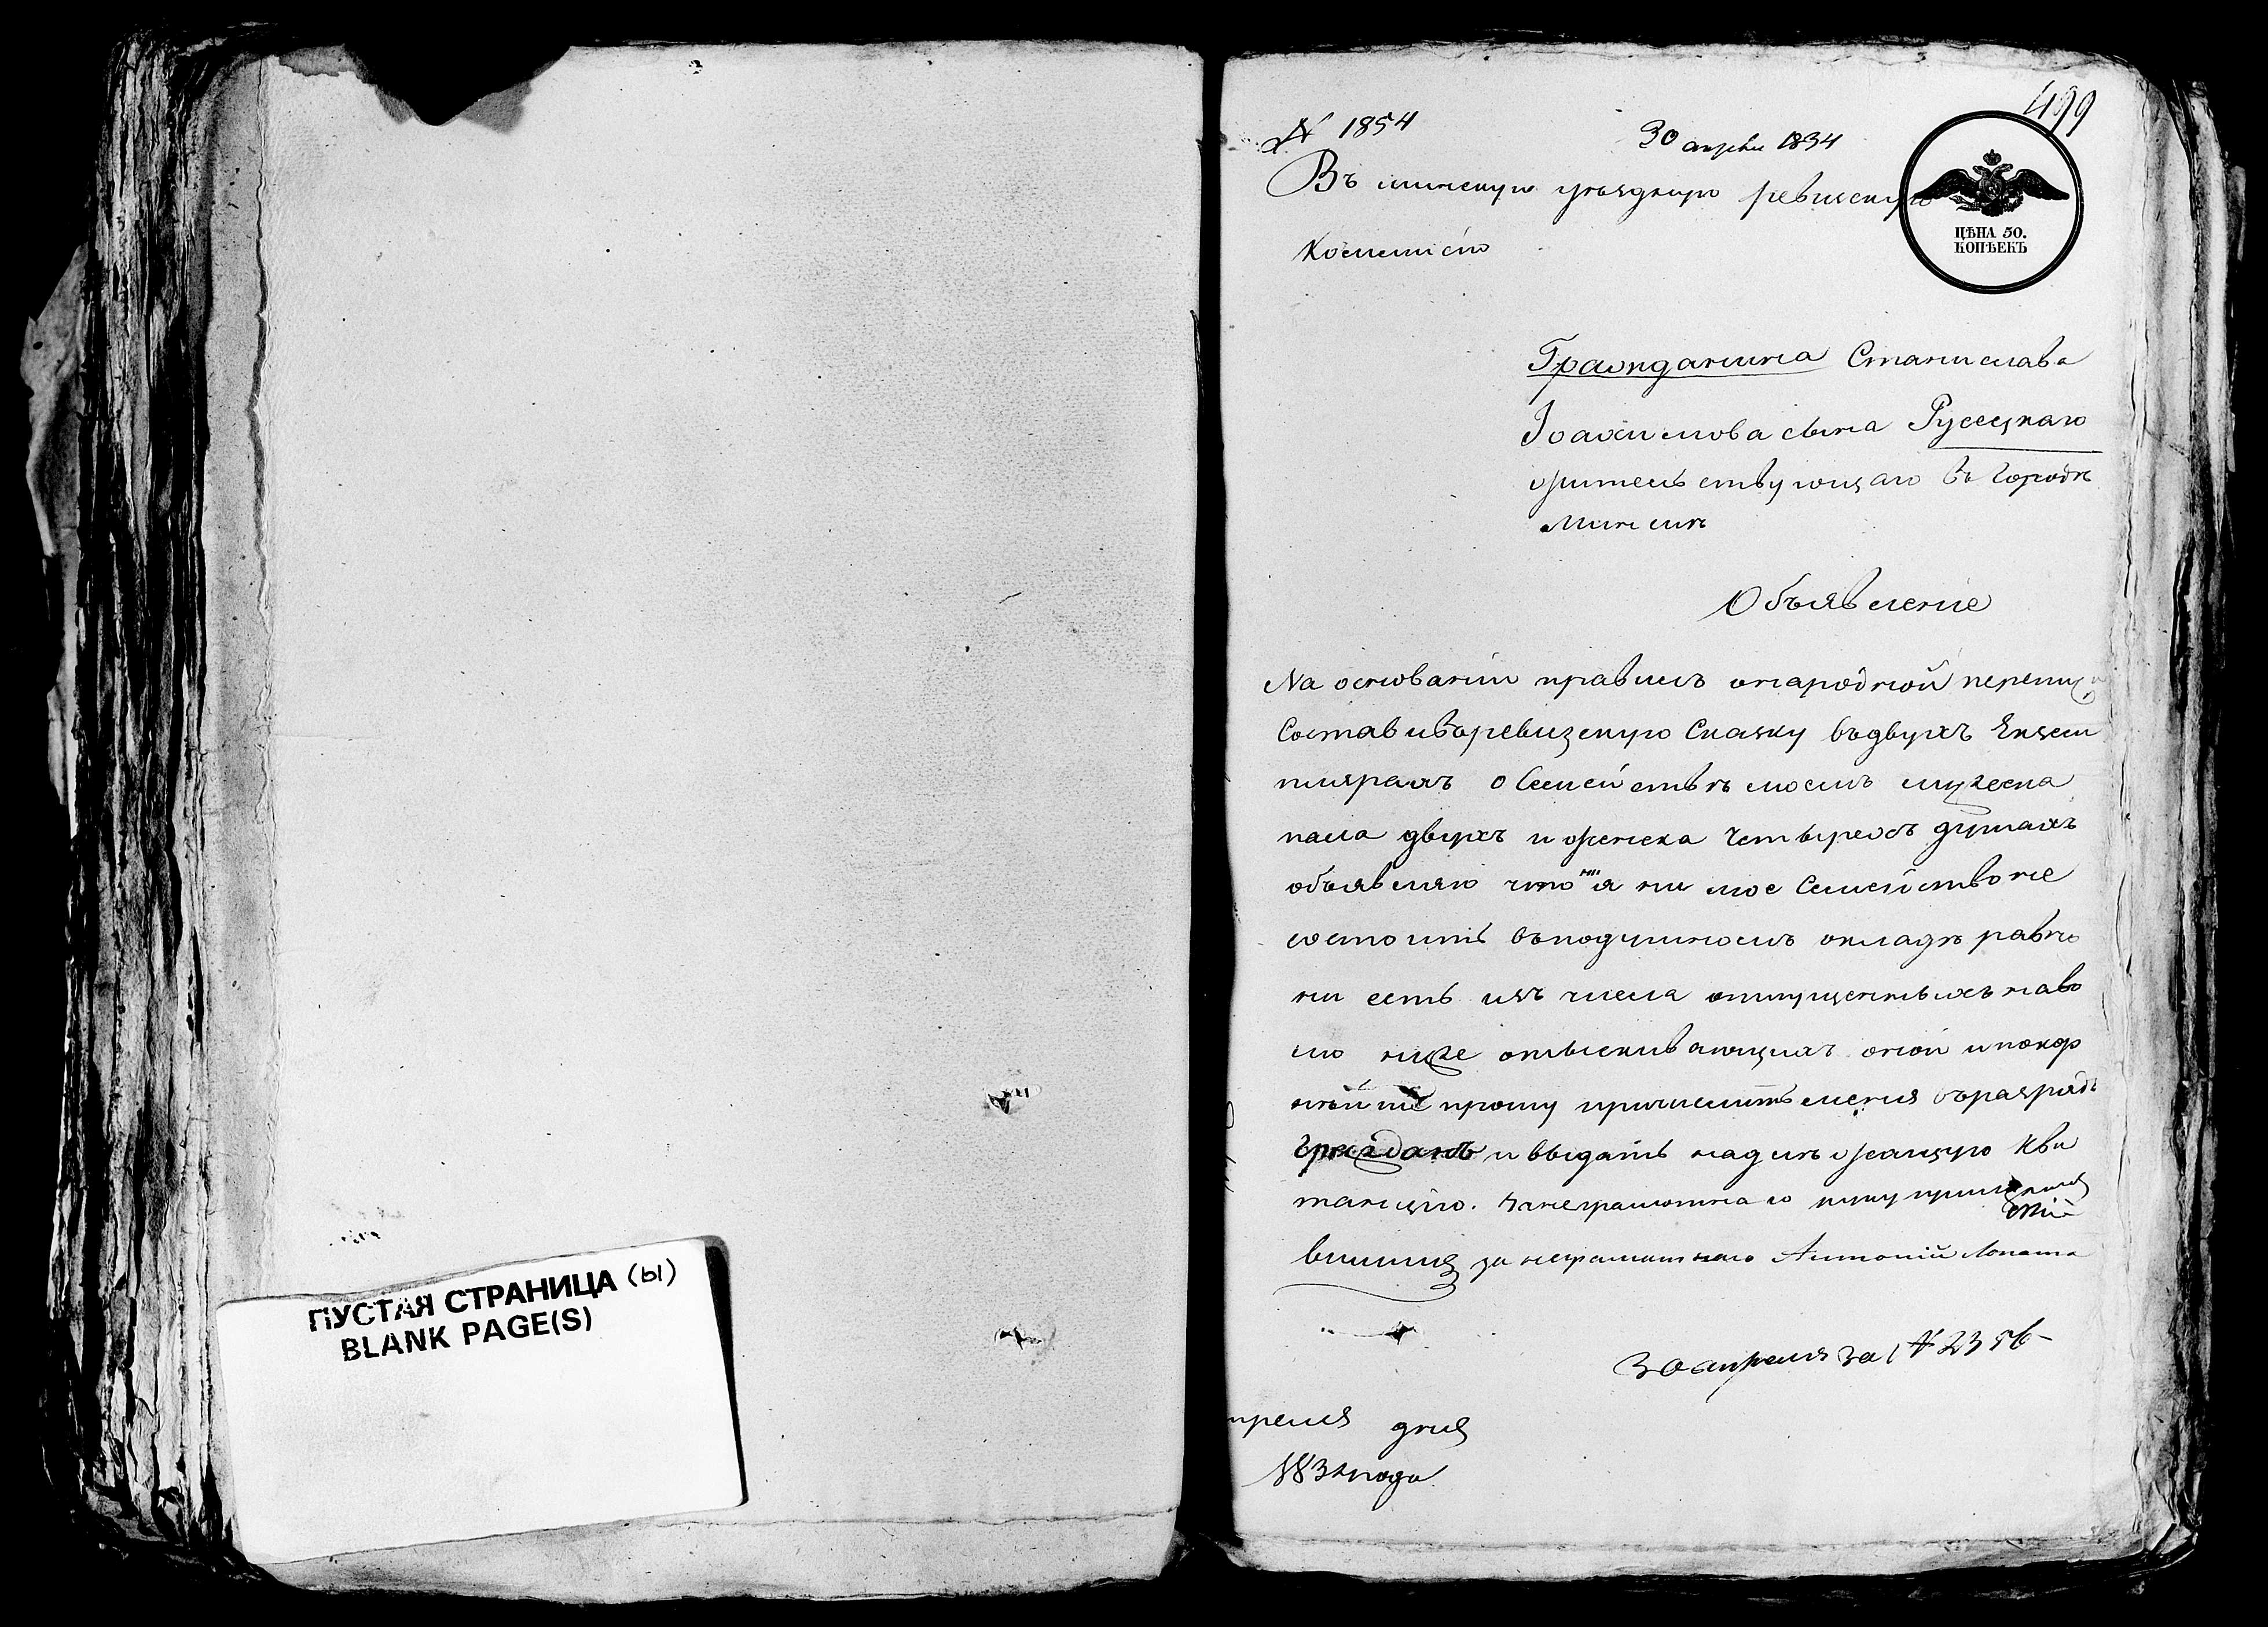 ПУСТАЯ СТРАНИЦА (ы)
BLANK PAGE(S)
499
№ 1854
30 апрѣля 1834
Въ минскую уѣздную ревизскую
Коммисію
ЦѢНА 50.
КОПѢЕКЪ
Гражданина Станислава
Іоахимова сына Русецкаго
жительствующаго въ городѣ
Минскѣ
Объявленіе
На основаніи правилъ онародной переписи
Составивъ ревизскую Сказку въ двухъ Екзем
плярахъ о Семействѣ моемъ мужеска
пола двухъ и женска Четырехъ душахъ
объявляю что ни я ни мое Семейство не
состоитъ въ подушномъ окладѣ равно
ни есть изъ числа отпущенныхъ наво
лю ниже отыскивающихъ оной и покор
нѣйше прошу причислить меня въ разрядъ
Гражданъ и выдать надлежащую Кви
танцію. Занеграмотнаго
за неграмотнаго Антоній Лопата
30 апреля за № 2356
апреля дня
1834 года